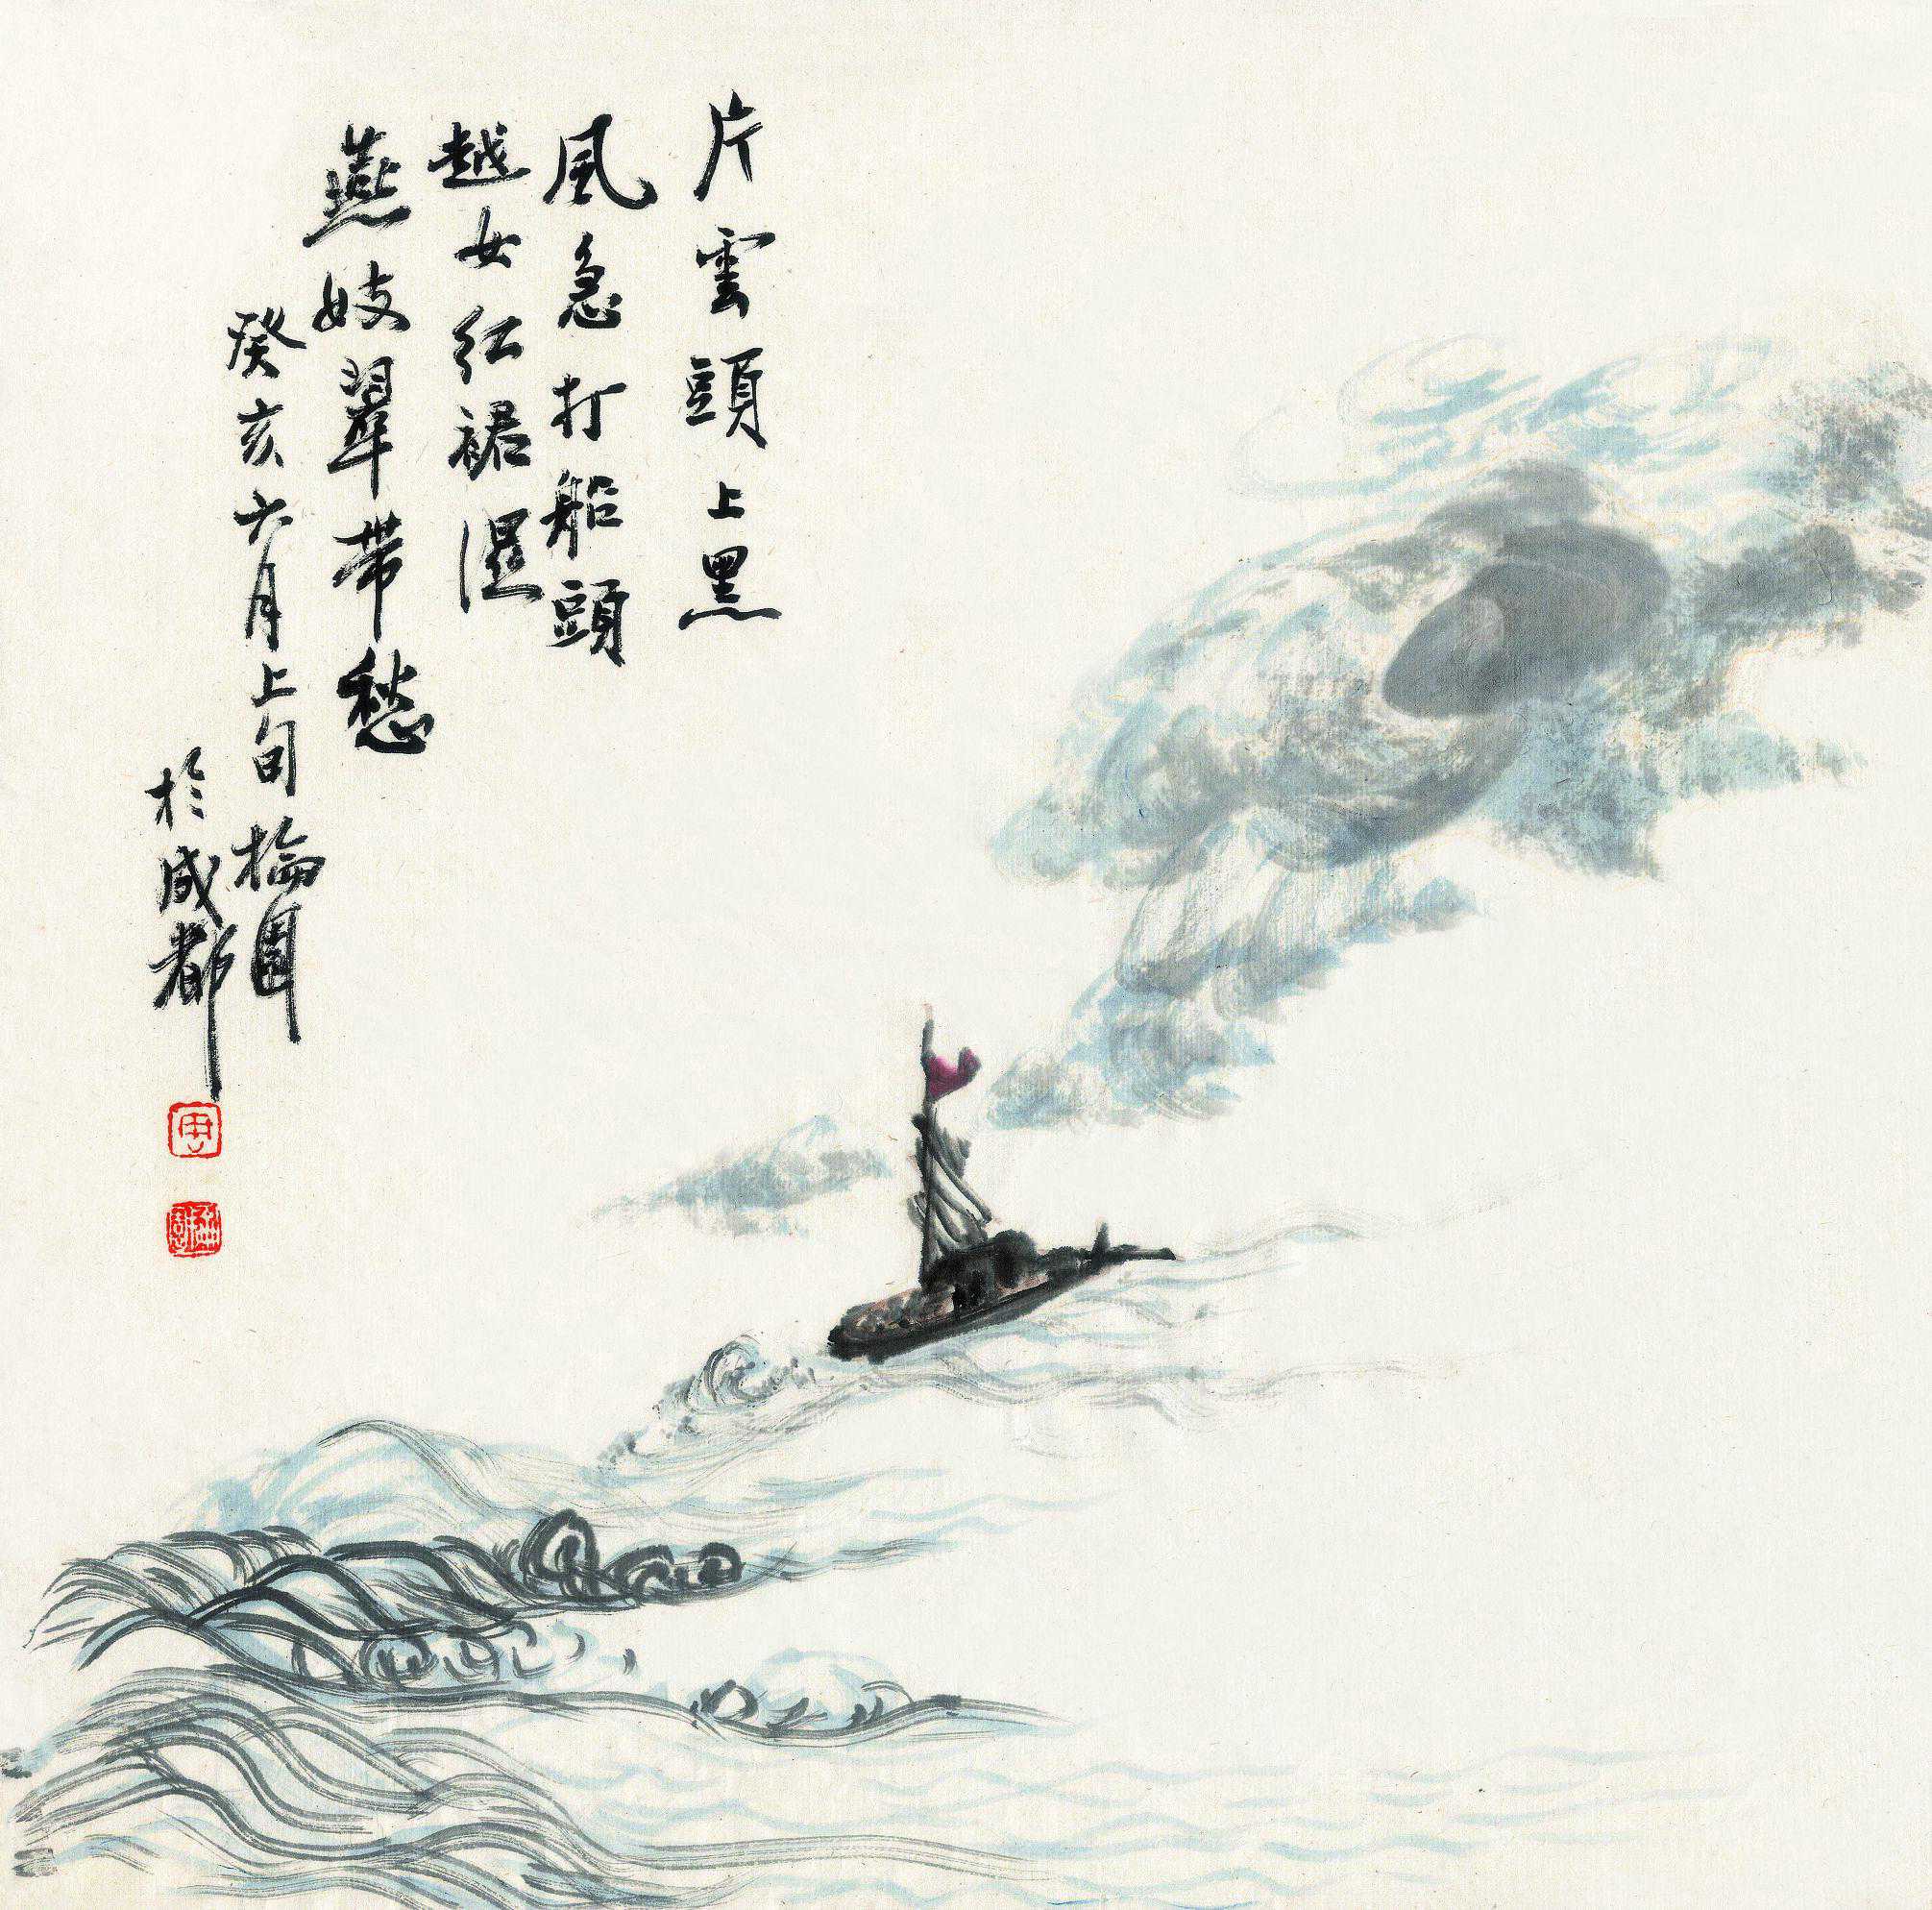 片雲頭上黑
風急打船頭
越女紅裙濕
燕妓翠帶愁
癸亥六月上旬掄園
於成都